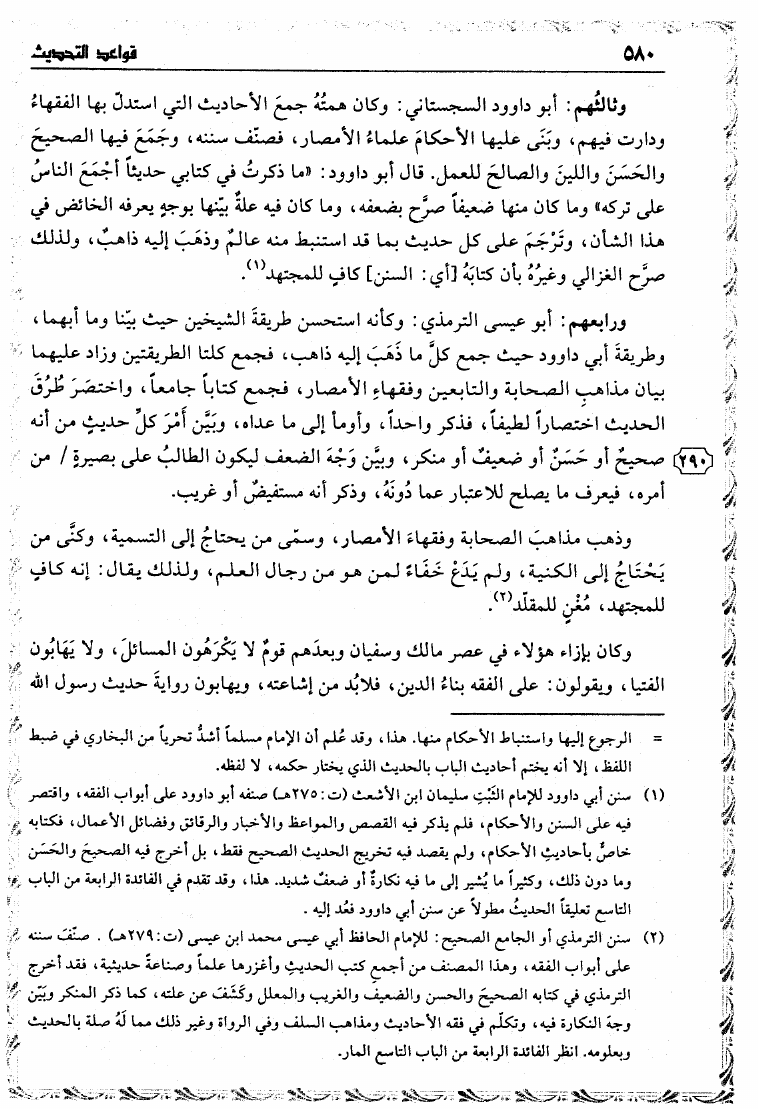 ٥٨٠
قواعد التحديث
وثالثُهم: أبو داوود السجستاني: وكان همتُهُ جمعَ الأحاديث التي استدلّ بها الفقهاءُ
ودارت فيهم، وبَنَى عليها الأحكامَ علماءُ الأمصار، فصنّف سننه، وجَمَعَ فيها الصحيحَ
والحَسَنَ واللينَ والصالحَ للعمل. قال أبو داوود: «ما ذكرتُ في كتابي حديثاً أجْمَعَ الناسُ
على تركه» وما كان منها ضعيفاً صرَّح بضعفه، وما كان فيه علةٌ بيّنها بوجهٍ يعرفه الخائض في
هذا الشأن، وتَرْجَمَ على كل حديث بما قد استنبط منه عالمٌ وذهَبَ إليه ذاهبٌ، ولذلك
صرَّح الغزالي وغيرُهُ بأن كتابَهُ [أي: السنن] كافٍ للمجتهد(١).
ورابعهم: أبو عيسى الترمذي: وكأنه استحسن طريقةَ الشيخين حيث بيّنا وما أبهما،
وطريقةَ أبي داوود حيث جمع كلَّ ما ذَهَبَ إليه ذاهب، فجمع كلتا الطريقتين وزاد عليهما
بيان مذاهبِ الصحابة والتابعين وفقهاءِ الأمصار، فجمع كتاباً جامعاً، واختصَرَ طُرُقَ
الحديث اختصاراً لطيفاً، فذكر واحداً، وأومأ إلى ما عداه، وبَيَّن أمْرَ كلِّ حديثٍ من أنه
صحيحٌ أو حَسَنٌ أو ضعيفٌ أو منكر، وبيَّن وَجْهَ الضعف ليكون الطالبُ على بصيرةٍ / من
٢٩٠
أمره، فيعرف ما يصلح للاعتبار عما دُونَهُ، وذكر أنه مستفيضٌ أو غريب.
وذهب مذاهبَ الصحابة وفقهاءَ الأمصار، وسمّى من يحتاجُ إلى التسمية، وكنَّى من
يَحْتَاجُ إلى الكنية، ولم يَدَعْ خَفَاءً لمن هو من رجال العلم، ولذلك يقال: إنه كافٍ
للمجتهد، مُغْنٍ للمقلّد(٢).
وكان بإزاء هؤلاء في عصر مالك وسفيان وبعدَهم قومٌ لا يَكْرَهُون المسائلَ، ولا يَهَابُون
الفتيا، ويقولون: على الفقه بناءُ الدين، فلابُد من إشاعته، ويهابون روايةَ حديث رسول الله
= الرجوع إليها واستنباط الأحكام منها. هذا، وقد عُلم أن الإمام مسلماً أشدُّ تحرياً من البخاري في ضبط
اللفظ، إلا أنه يختم أحاديث الباب بالحديث الذي يختار حكمه، لا لفظه.
(١) سنن أبي داوود للإمام الثَبْتِ سليمان ابن الأشعث (ت:٢٧٥هـ) صنفه أبو داوود على أبواب الفقه، واقتصر
فيه على السنن والأحكام، فلم يذكر فيه القصص والمواعظ والأخبار والرقائق وفضائل الأعمال، فكتابه
خاصٌّ بأحاديثِ الأحكام، ولم يقصد فيه تخريج الحديث الصحيح فقط، بل أخرج فيه الصحيحَ والحَسَن
وما دون ذلك، وكثيراً ما يُشير إلى ما فيه نكارةٌ أو ضعفٌ شديد. هذا، وقد تقدم في الفائدة الرابعة من الباب
التاسع تعليقاً الحديثُ مطولاً عن سنن أبي داوود فعُد إليه .
(٢) سنن الترمذي أو الجامع الصحيح: للإمام الحافظ أبي عيسى محمد ابن عيسى (ت:٢٧٩هـ) . صنّفَ سننه
على أبواب الفقه، وهذا المصنف من أجمع كتب الحديثِ وأغزرها علماً وصناعةً حديثية، فقد أخرج
الترمذي في كتابه الصحيحَ والحسن والضعيف والغريب والمعلل وكَشَفَ عن علته، كما ذكر المنكر وبَيّن
وجهَ النكارة فيه، وتكلّم في فقه الأحاديث ومذاهب السلف وفي الرواة وغير ذلك مما لَهُ صلة بالحديث
وبعلومه. انظر الفائدة الرابعة من الباب التاسع المار.